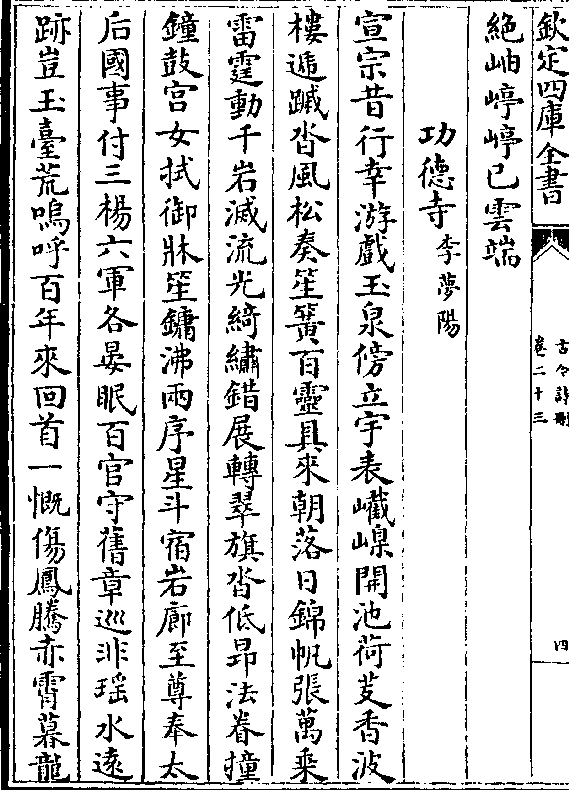 欽定四庫全書
古今詩刪
卷二十三
四
絶岫崞崞已雲端
功德寺李夢陽
宣宗昔行幸游戲玉泉傍立宇表巀嵲開池荷芰香波
樓遞蹴沓風松奏笙簧百靈具來朝落日錦帆張萬乗
雷霆動千岩滅流光綺繡錯展轉翠旗沓低昻法眷撞
鐘鼓宫女拭御牀笙鏞沸兩序星斗宿岩廊至尊奉太
后國事付三楊六軍各晏眠百官守舊章巡非瑶水遠
跡豈玉臺荒嗚呼百年來回首一慨傷鳳騰赤霄暮龍